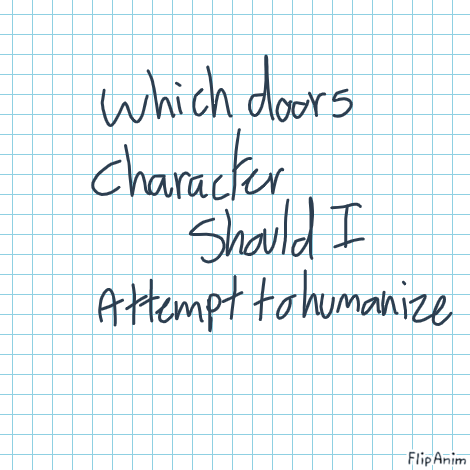 Which doors
Character
Should I
Attempt to humanize
FlipAnim